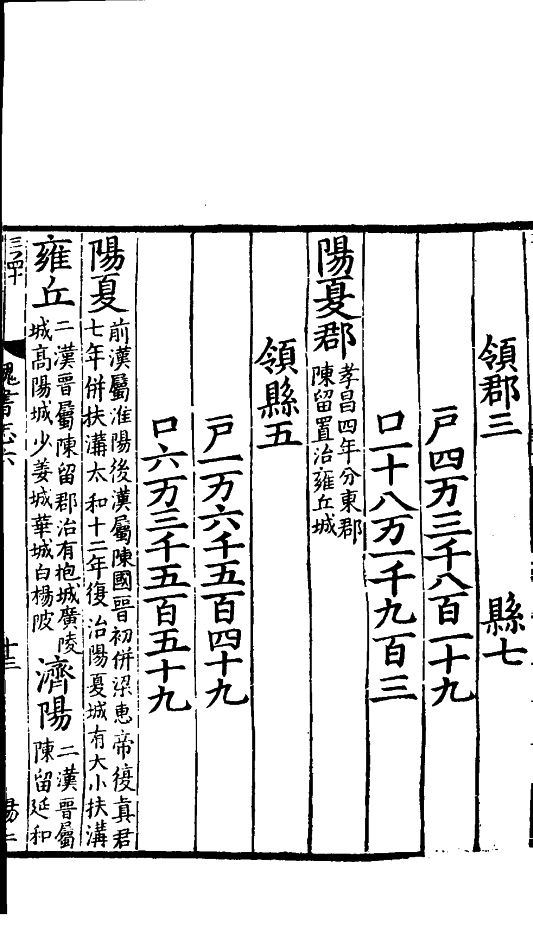 領郡三　縣七
戶四万三千八百一十九
口一十八万一千九百三
陽夏郡
孝昌四年分東郡
陳留置治雍丘城
領縣五
戶一万六千五百四十九
口六万三千五百五十九
陽夏
前漢屬淮陽後漢屬陳國晉初併梁惠帝復真君
七年併扶溝太和十二年復治陽夏城有大小扶溝
雍丘
二漢晉屬陳留郡治有抱城廣陵
城高陽城少姜城華城白楊陂
濟陽
二漢晉屬
陳留延和
魏書志六
十三